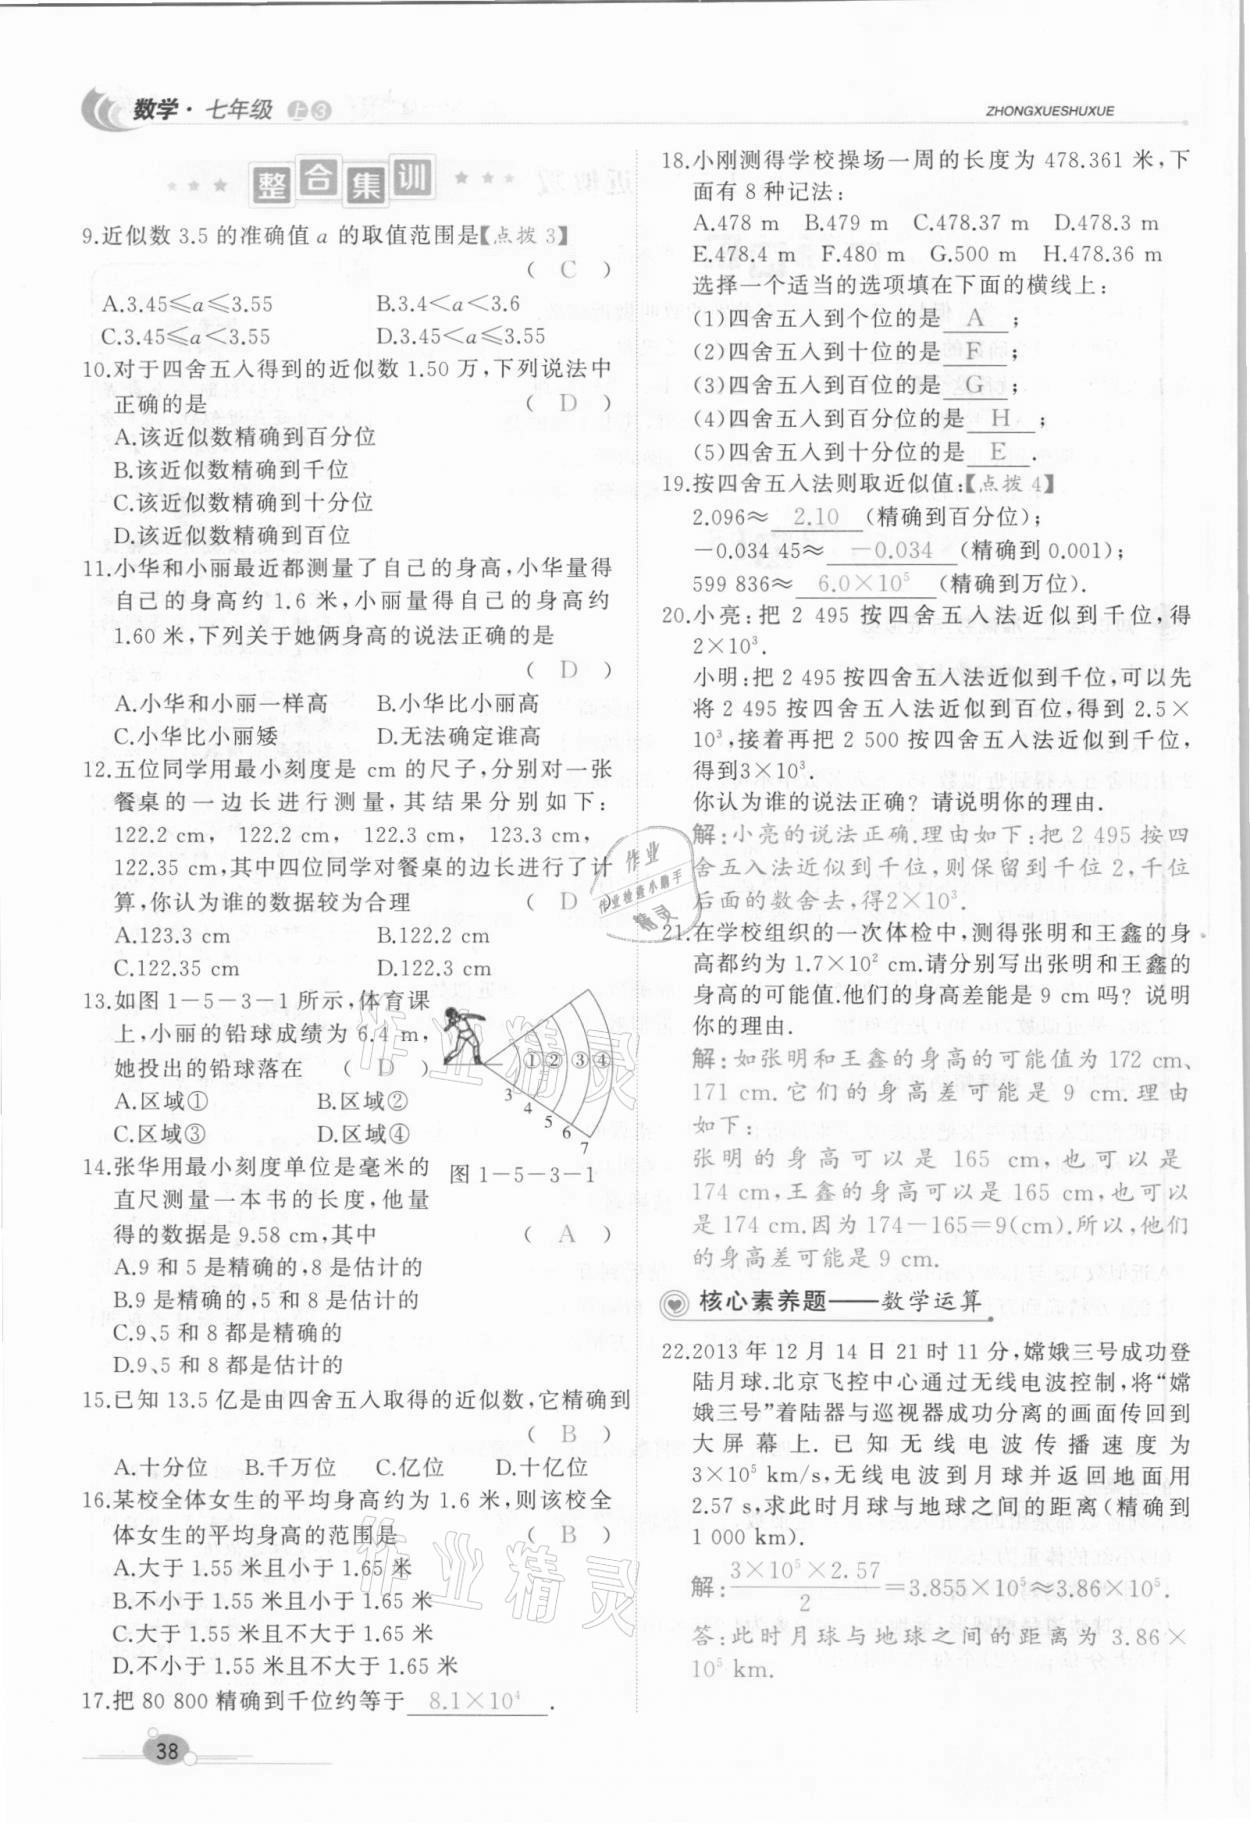 数学·七年级 上 3
ZHONGXUESHUXUE
整合集训
9.近似数 3.5 的准确值 a 的取值范围是【点拨 3】
( C )
A.3.45≤a≤3.55 B.3.4<a<3.6
C.3.45≤a<3.55 D.3.45<a≤3.55
10.对于四舍五入得到的近似数 1.50 万,下列说法中
正确的是 ( D )
A.该近似数精确到百分位
B.该近似数精确到千位
C.该近似数精确到十分位
D.该近似数精确到百位
11.小华和小丽最近都测量了自己的身高,小华量得
自己的身高约 1.6 米,小丽量得自己的身高约
1.60 米,下列关于她俩身高的说法正确的是
( D )
A.小华和小丽一样高 B.小华比小丽高
C.小华比小丽矮 D.无法确定谁高
12.五位同学用最小刻度是 cm 的尺子,分别对一张
餐桌的一边长进行测量,其结果分别如下:
122.2 cm, 122.2 cm, 122.3 cm, 123.3 cm,
122.35 cm,其中四位同学对餐桌的边长进行了计
算,你认为谁的数据较为合理 ( D )
A.123.3 cm B.122.2 cm
C.122.35 cm D.122.3 cm
13.如图 1-5-3-1 所示,体育课
上,小丽的铅球成绩为 6.4 m,
她投出的铅球落在 ( D )
A.区域① B.区域②
C.区域③ D.区域④
①②③④
3 4 5 6 7
图 1-5-3-1
14.张华用最小刻度单位是毫米的
直尺测量一本书的长度,他量
得的数据是 9.58 cm,其中 ( A )
A.9 和 5 是精确的,8 是估计的
B.9 是精确的,5 和 8 是估计的
C.9、5 和 8 都是精确的
D.9、5 和 8 都是估计的
15.已知 13.5 亿是由四舍五入取得的近似数,它精确到
( B )
A.十分位 B.千万位 C.亿位 D.十亿位
16.某校全体女生的平均身高约为 1.6 米,则该校全
体女生的平均身高的范围是 ( B )
A.大于 1.55 米且小于 1.65 米
B.不小于 1.55 米且小于 1.65 米
C.大于 1.55 米且不大于 1.65 米
D.不小于 1.55 米且不大于 1.65 米
17.把 80 800 精确到千位约等于 8.1×10⁴ .
38
18.小刚测得学校操场一周的长度为 478.361 米,下
面有 8 种记法:
A.478 m B.479 m C.478.37 m D.478.3 m
E.478.4 m F.480 m G.500 m H.478.36 m
选择一个适当的选项填在下面的横线上:
(1)四舍五入到个位的是 A ;
(2)四舍五入到十位的是 F ;
(3)四舍五入到百位的是 G ;
(4)四舍五入到百分位的是 H ;
(5)四舍五入到十分位的是 E .
19.按四舍五入法则取近似值:【点拨 4】
2.096≈ 2.10 (精确到百分位);
-0.034 45≈ -0.034 (精确到 0.001);
599 836≈ 6.0×10⁵ (精确到万位).
20.小亮:把 2 495 按四舍五入法近似到千位,得
2×10³.
小明:把 2 495 按四舍五入法近似到千位,可以先
将 2 495 按四舍五入法近似到百位,得到 2.5×
10³,接着再把 2 500 按四舍五入法近似到千位,
得到3×10³.
你认为谁的说法正确? 请说明你的理由.
解:小亮的说法正确.理由如下:把 2 495 按四
舍五入法近似到千位,则保留到千位 2,千位
后面的数舍去,得2×10³.
21.在学校组织的一次体检中,测得张明和王鑫的身
高都约为 1.7×10² cm.请分别写出张明和王鑫的
身高的可能值.他们的身高差能是 9 cm 吗? 说明
你的理由.
解:如张明和王鑫的身高的可能值为 172 cm、
171 cm.它们的身高差可能是 9 cm.理由
如下:
张明的身高可以是 165 cm,也可以是
174 cm,王鑫的身高可以是 165 cm,也可以
是 174 cm.因为 174-165=9(cm).所以,他们
的身高差可能是 9 cm.
核心素养题——数学运算
22.2013 年 12 月 14 日 21 时 11 分,嫦娥三号成功登
陆月球.北京飞控中心通过无线电波控制,将“嫦
娥三号”着陆器与巡视器成功分离的画面传回到
大屏幕上.已知无线电波传播速度为
3×10⁵ km/s,无线电波到月球并返回地面用
2.57 s,求此时月球与地球之间的距离(精确到
1 000 km).
解: 3×10⁵×2.57/2 =3.855×10⁵≈3.86×10⁵.
答:此时月球与地球之间的距离为 3.86×
10⁵ km.
作业
作业检查小助手
精灵
作业精灵
作业精灵